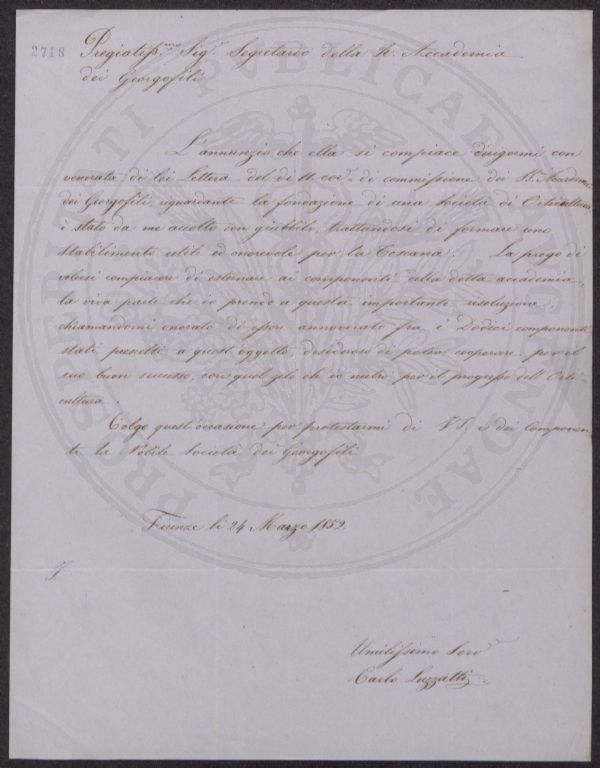 2718
Pregiatiss.mo Sig.r Segretario della R. Accademia
dei Georgofili
L'annunzio che ella si compiace dirigermi con
venerata di lei Lettera del dì 11 cor.e di commissione dei R. Accademia
dei Georgofili, riguardante la fondazione di una società di Orticultura
è stato da me accolto con giubbilo, trattandosi di formare uno
stabilimento utile ed onorevole per la Toscana. La prego di
volersi compiacere di esternare ai componenti della dotta accademia
la viva parte che io prendo a questa importante risoluzione
chiamandomi onorato di essere annoverato fra i Dodici componenti
stati prescelti a quest'oggetto, desideroso di poter cooperare per il
suo buon successo, con quel zelo che io nutro per il progresso dell'Orti-
cultura.
Colgo quest'occasione per protestarmi di V.S. e dei componen-
ti la Nobile Società dei Georgofili
Firenze li 24 Marzo 1852
Umilissimo Serv.
Carlo Luzzatti
PROSPERITATI PUBLICAE AUGENDAE